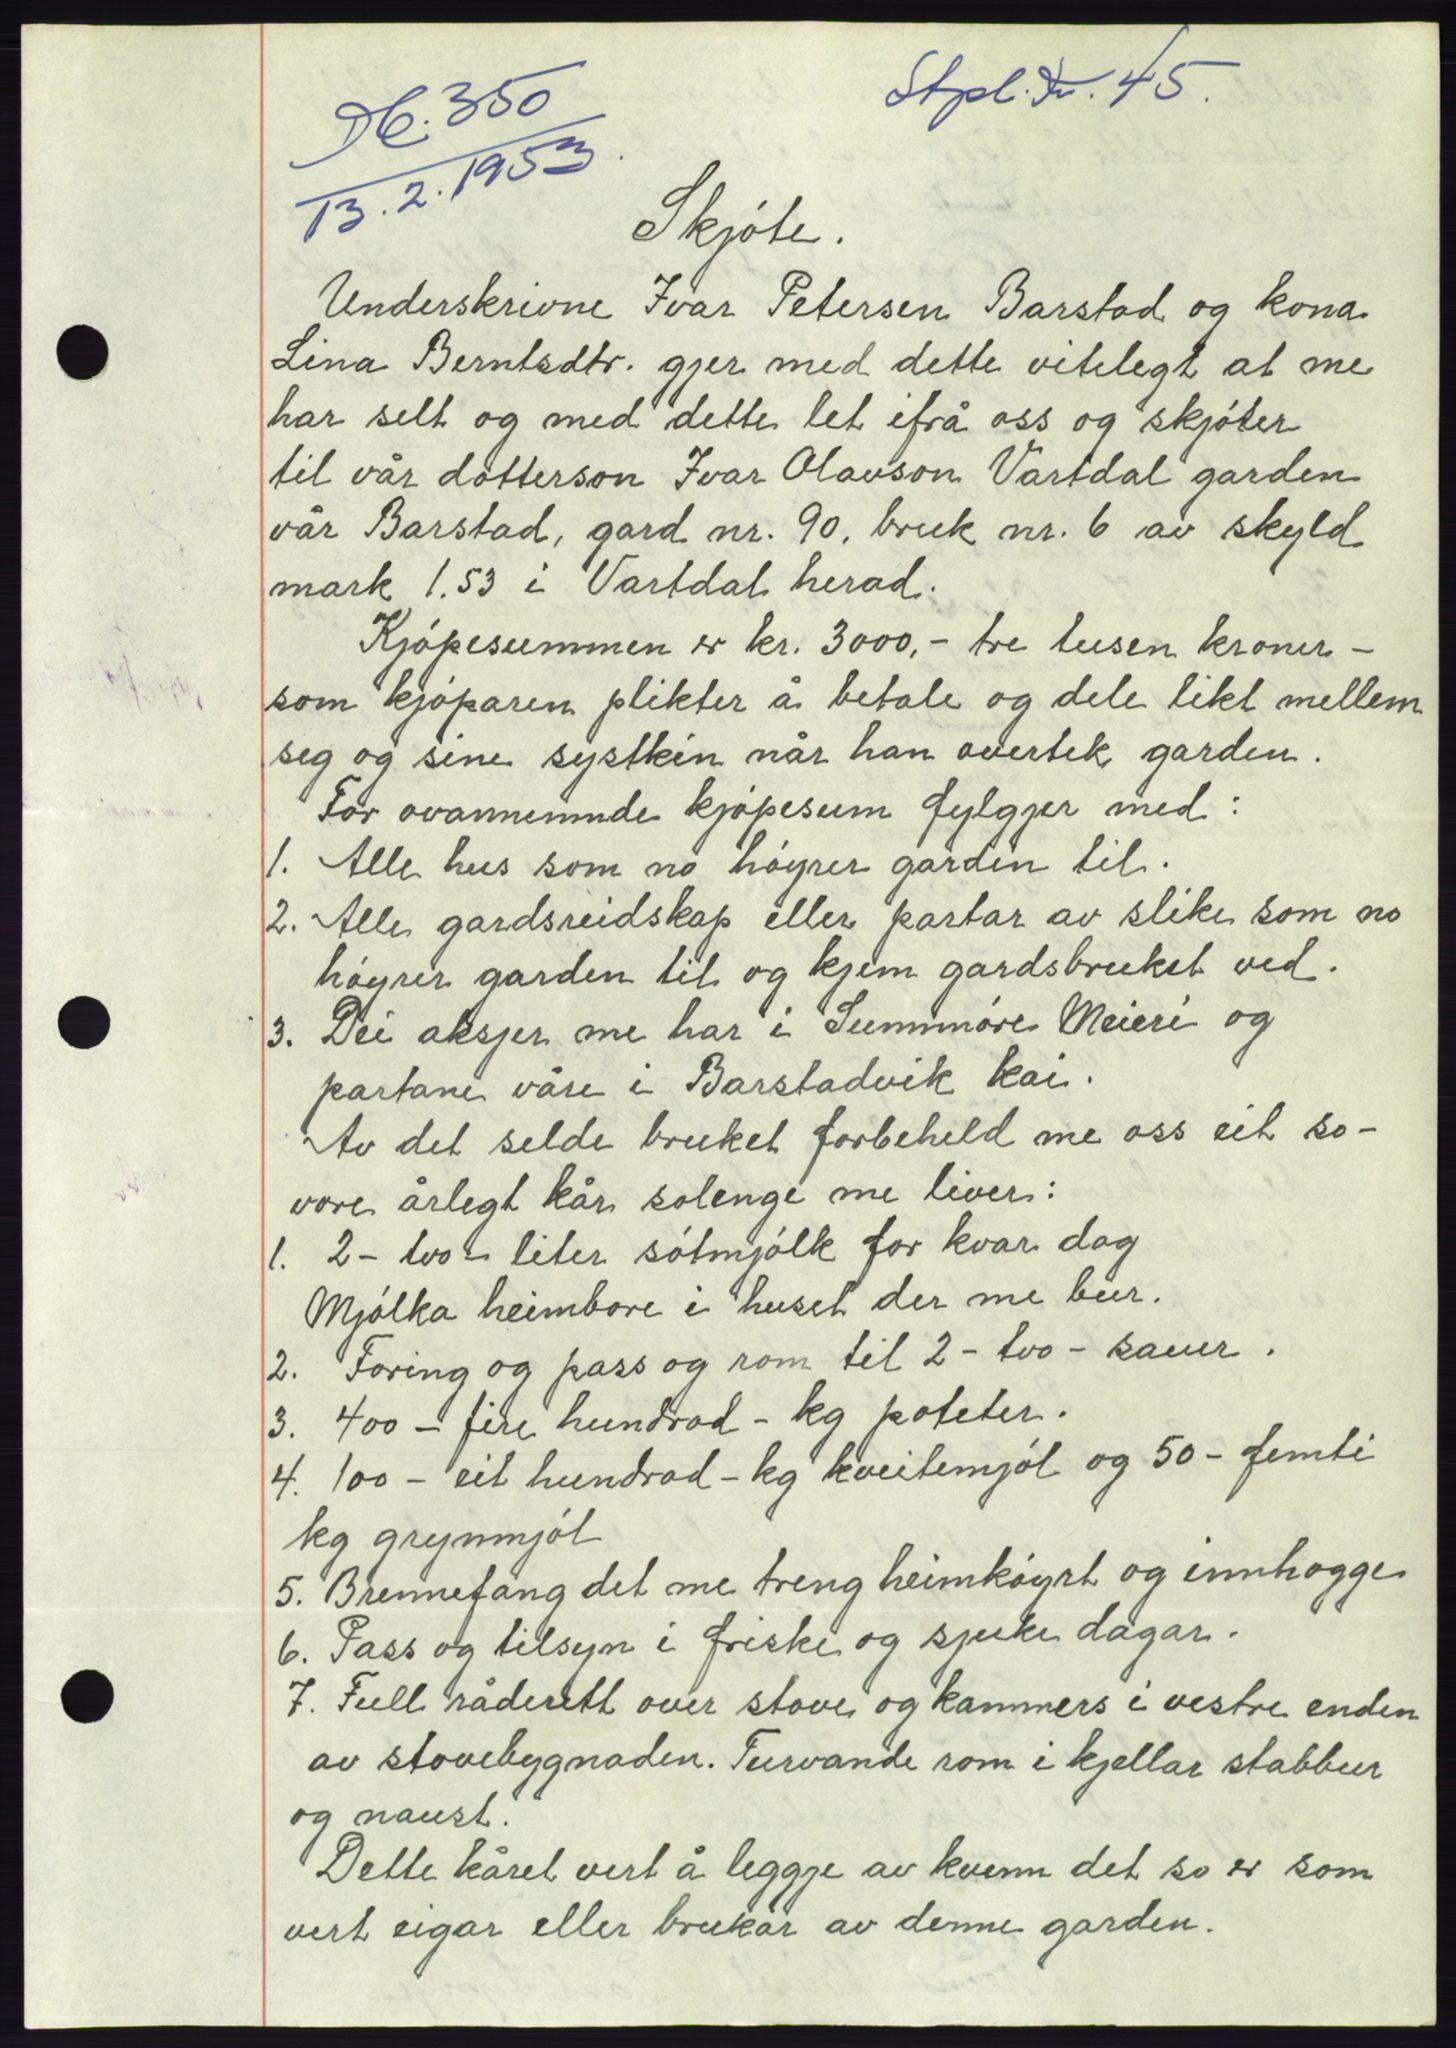 Db. 350
13.2.1953.
Stpl. kr. 45.
Skjóte.
Underskrivne Ivar Petersen Barstad og kona
Lina Berntsdtr. gjer med dette vitelegt at me
har selt og med dette let ifrå oss og skjóter
til vår dotterson Ivar Olavson Vartdal garden
vår Barstad, gard nr. 90, bruk nr. 6 av skyld
mark 1.53 i Vartdal herad.
Kjópesummen er kr. 3000,- tre tusen kroner -
som kjóparen plikter å betale og dele likt mellem
seg og sine systkin når han overtek garden.
For ovannemnde kjópesum fylgjer med:
1. Alle hus som no hóyrer garden til.
2. Alle gardsreidskap eller partar av slike som no
hóyrer garden til og kjem gardsbruket ved.
3. Dei aksjer me har i Sunnmóre Meieri og
partane våre i Barstadvik kai.
Av det selde bruket forbeheld me oss eit so-
vore årlegt kår solenge me liver:
1. 2 - tvo - liter sótmjólk for kvar dag
Mjólka heimbore i huset der me bur.
2. Foring og pass og rom til 2 - tvo - sauer.
3. 400 - fire hundrad - kg poteter.
4. 100 - eit hundrad - kg kveitemjól og 50 - femti
kg grynmjól
5. Brennefang det me treng heimkóyrt og innhogge
6. Pass og tilsyn i friske og sjuke dagar.
7. Full råderett over stove og kammers i vestre enden
av stovebygnaden. Turvande rom i kjellar stabbur
og naust.
Dette kåret vert å leggje av kvenn det so er som
vert eigar eller brukar av denne garden.